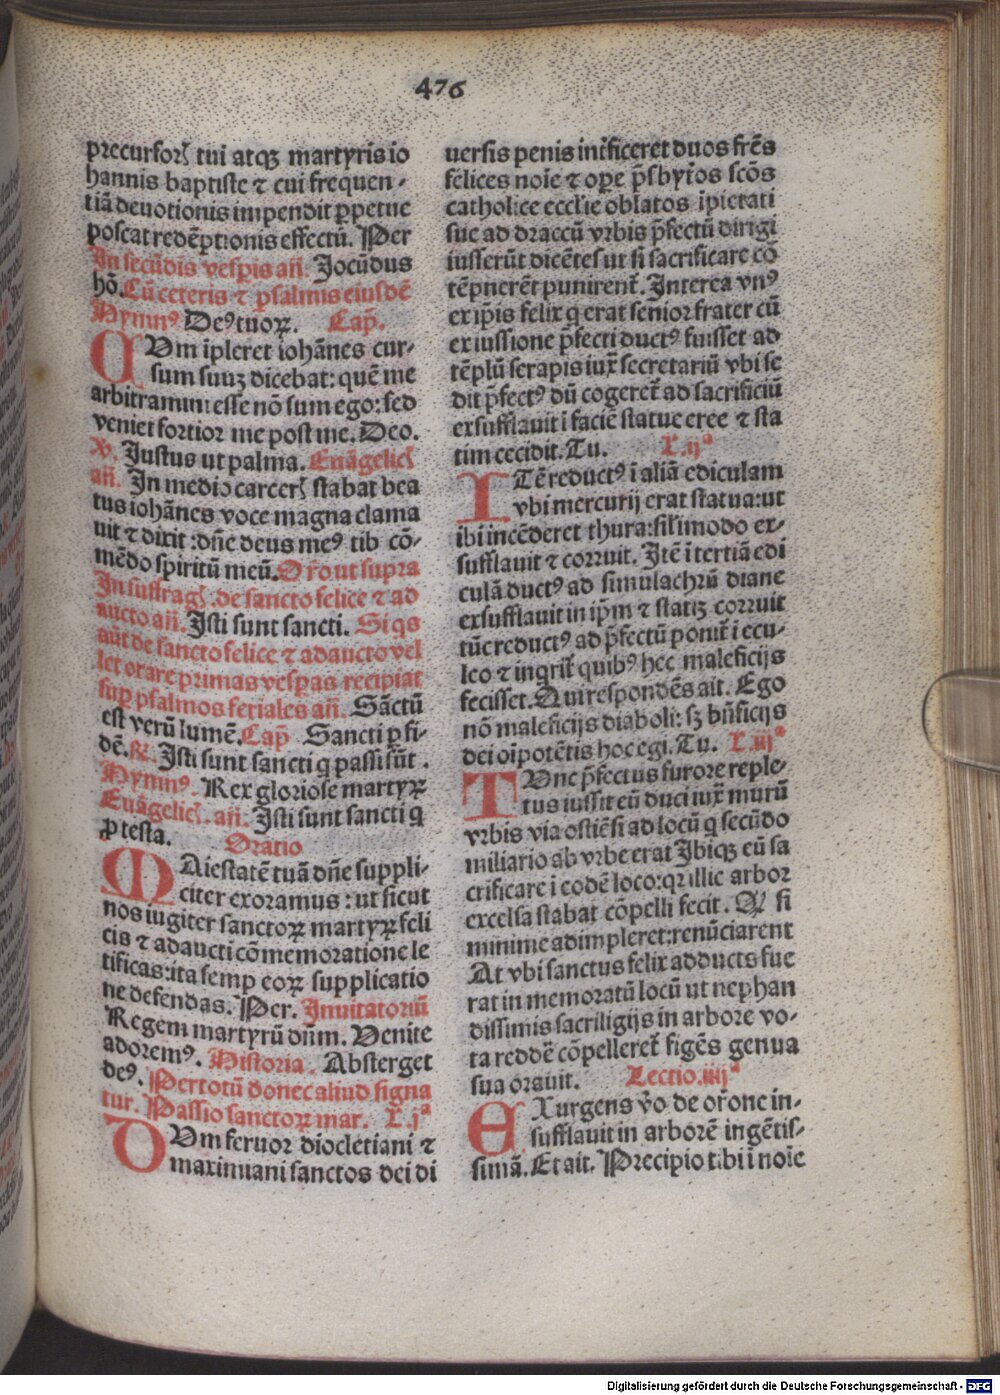 476
precursorꝭ tui atqꝫ martyris io
hannis baptiste ⁊ cui frequen-
tiā deuotionis impendit ꝑpetue
poscat redēptionis effectū. Per
In secūdis vesꝑis añ. Jocūdus
hō. Cū ceteris ⁊ psalmis eiusdē
Hymnꝰ Deꝰ tuoꝝ. Cap̄.
CVm īpleret iohānes cur-
sum suuꝫ dicebat: quē me
arbitramini esse nō sum ego: sed
veniet fortior me post me. Deo.
℣. Justus ut palma. Euāgelicꝭ
añ. In medio carcerꝭ stabat bea
tus iohānes voce magna clama
uit ⁊ dixit: dñe deus meꝰ tib cō-
mēdo spiritū meū. Or̄o ut supra
In suffragꝭ. de sancto felice ⁊ ad
aucto añ. Isti sunt sancti. Si qs
aūt de sancto felice ⁊ adaucto vel
let orare primas vesꝑas recipiat
suꝑ psalmos feriales añ. Sāctū
est verū lumē. Cap̄ Sancti ꝑ fi-
dē. ℟. Isti sunt sancti q passi sūt.
Hymnꝰ. Rex gloriose martyꝝ
Euāgelicꝭ. añ. Isti sunt sancti q
ꝓ testa. Oratio
MAiestatē tuā dñe suppli-
citer exoramus: ut sicut
nos iugiter sanctoꝝ martyꝝ feli
cis ⁊ adaucti cōmemoratione le
tificas: ita semꝑ eoꝝ supplicatio
ne defendas. Per. Inuitatoriū
Regem martyrū dn̄m. Venite
adoremꝰ. Historia. Absterget
deꝰ. Per totū donec aliud signa
tur. Passio sanctoꝝ mar. L. jª
DVm feruor diocletiani ⁊
maximiani sanctos dei di
uersis penis int̄ficeret duos fr̄es
felices noīe ⁊ oꝑe p̄sbyt̄os scōs
catholice eccl̄ie oblatos īpietati
sue ad draccū vrbis p̄fectū dirigi
iusserūt dicētes ut si sacrificare cō
tēpnerēt punirent̄. Interea vnꝰ
ex ip̄is felix q erat senior frater cū
ex iussione p̄fecti ductꝰ fuisset ad
tēplū serapis iux̄ secretariū vbi se
dit p̄fectꝰ dū cogeret̄ ad sacrificiū
exsufflauit ī faciē statue eree ⁊ sta
tim cecidit. Tu. L. ijª
ITē reductꝰ ī aliā ediculam
vbi mercurij erat statua: ut
ibi incēderet thura: sil̄imodo ex-
sufflauit ⁊ corruit. Itē ī tertiā edi
culā ductꝰ ad simulachrū diane
exsufflauit in ip̄m ⁊ statiꝫ corruit
tūc reductꝰ ad p̄fectū ponit̄ ī ecu-
leo ⁊ inqrit̄ quibꝰ hec maleficijs
fecisset. Qui respondēs ait. Ego
nō maleficijs diaboli: sꝫ bn̄ficijs
dei oīpotētis hoc egi. Tu. L. iijª
TVnc p̄fectus furore reple-
tus iussit eū duci iux̄ murū
vrbis via ostiēsi ad locū q secūdo
miliario ab vrbe erat Ibiqꝫ eū sa
crificare ī eodē loco: qꝛ illic arbor
excelsa stabat cōpelli fecit. Qꝛ si
minime adimpleret: renūciarent
At vbi sanctus felix adductꝰ fue
rat in memoratū locū ut nephan
dissimis sacriligijs in arbore vo-
ta reddē cōpelleret̄ figēs genua
sua orauit. Lectio. iiijª
EXurgens v̄o de or̄one in-
sufflauit in arborē ingētis-
simā. Et ait. Precipio tibi ī noīe
Digitalisierung gefördert durch die Deutsche Forschungsgemeinschaft - DFG